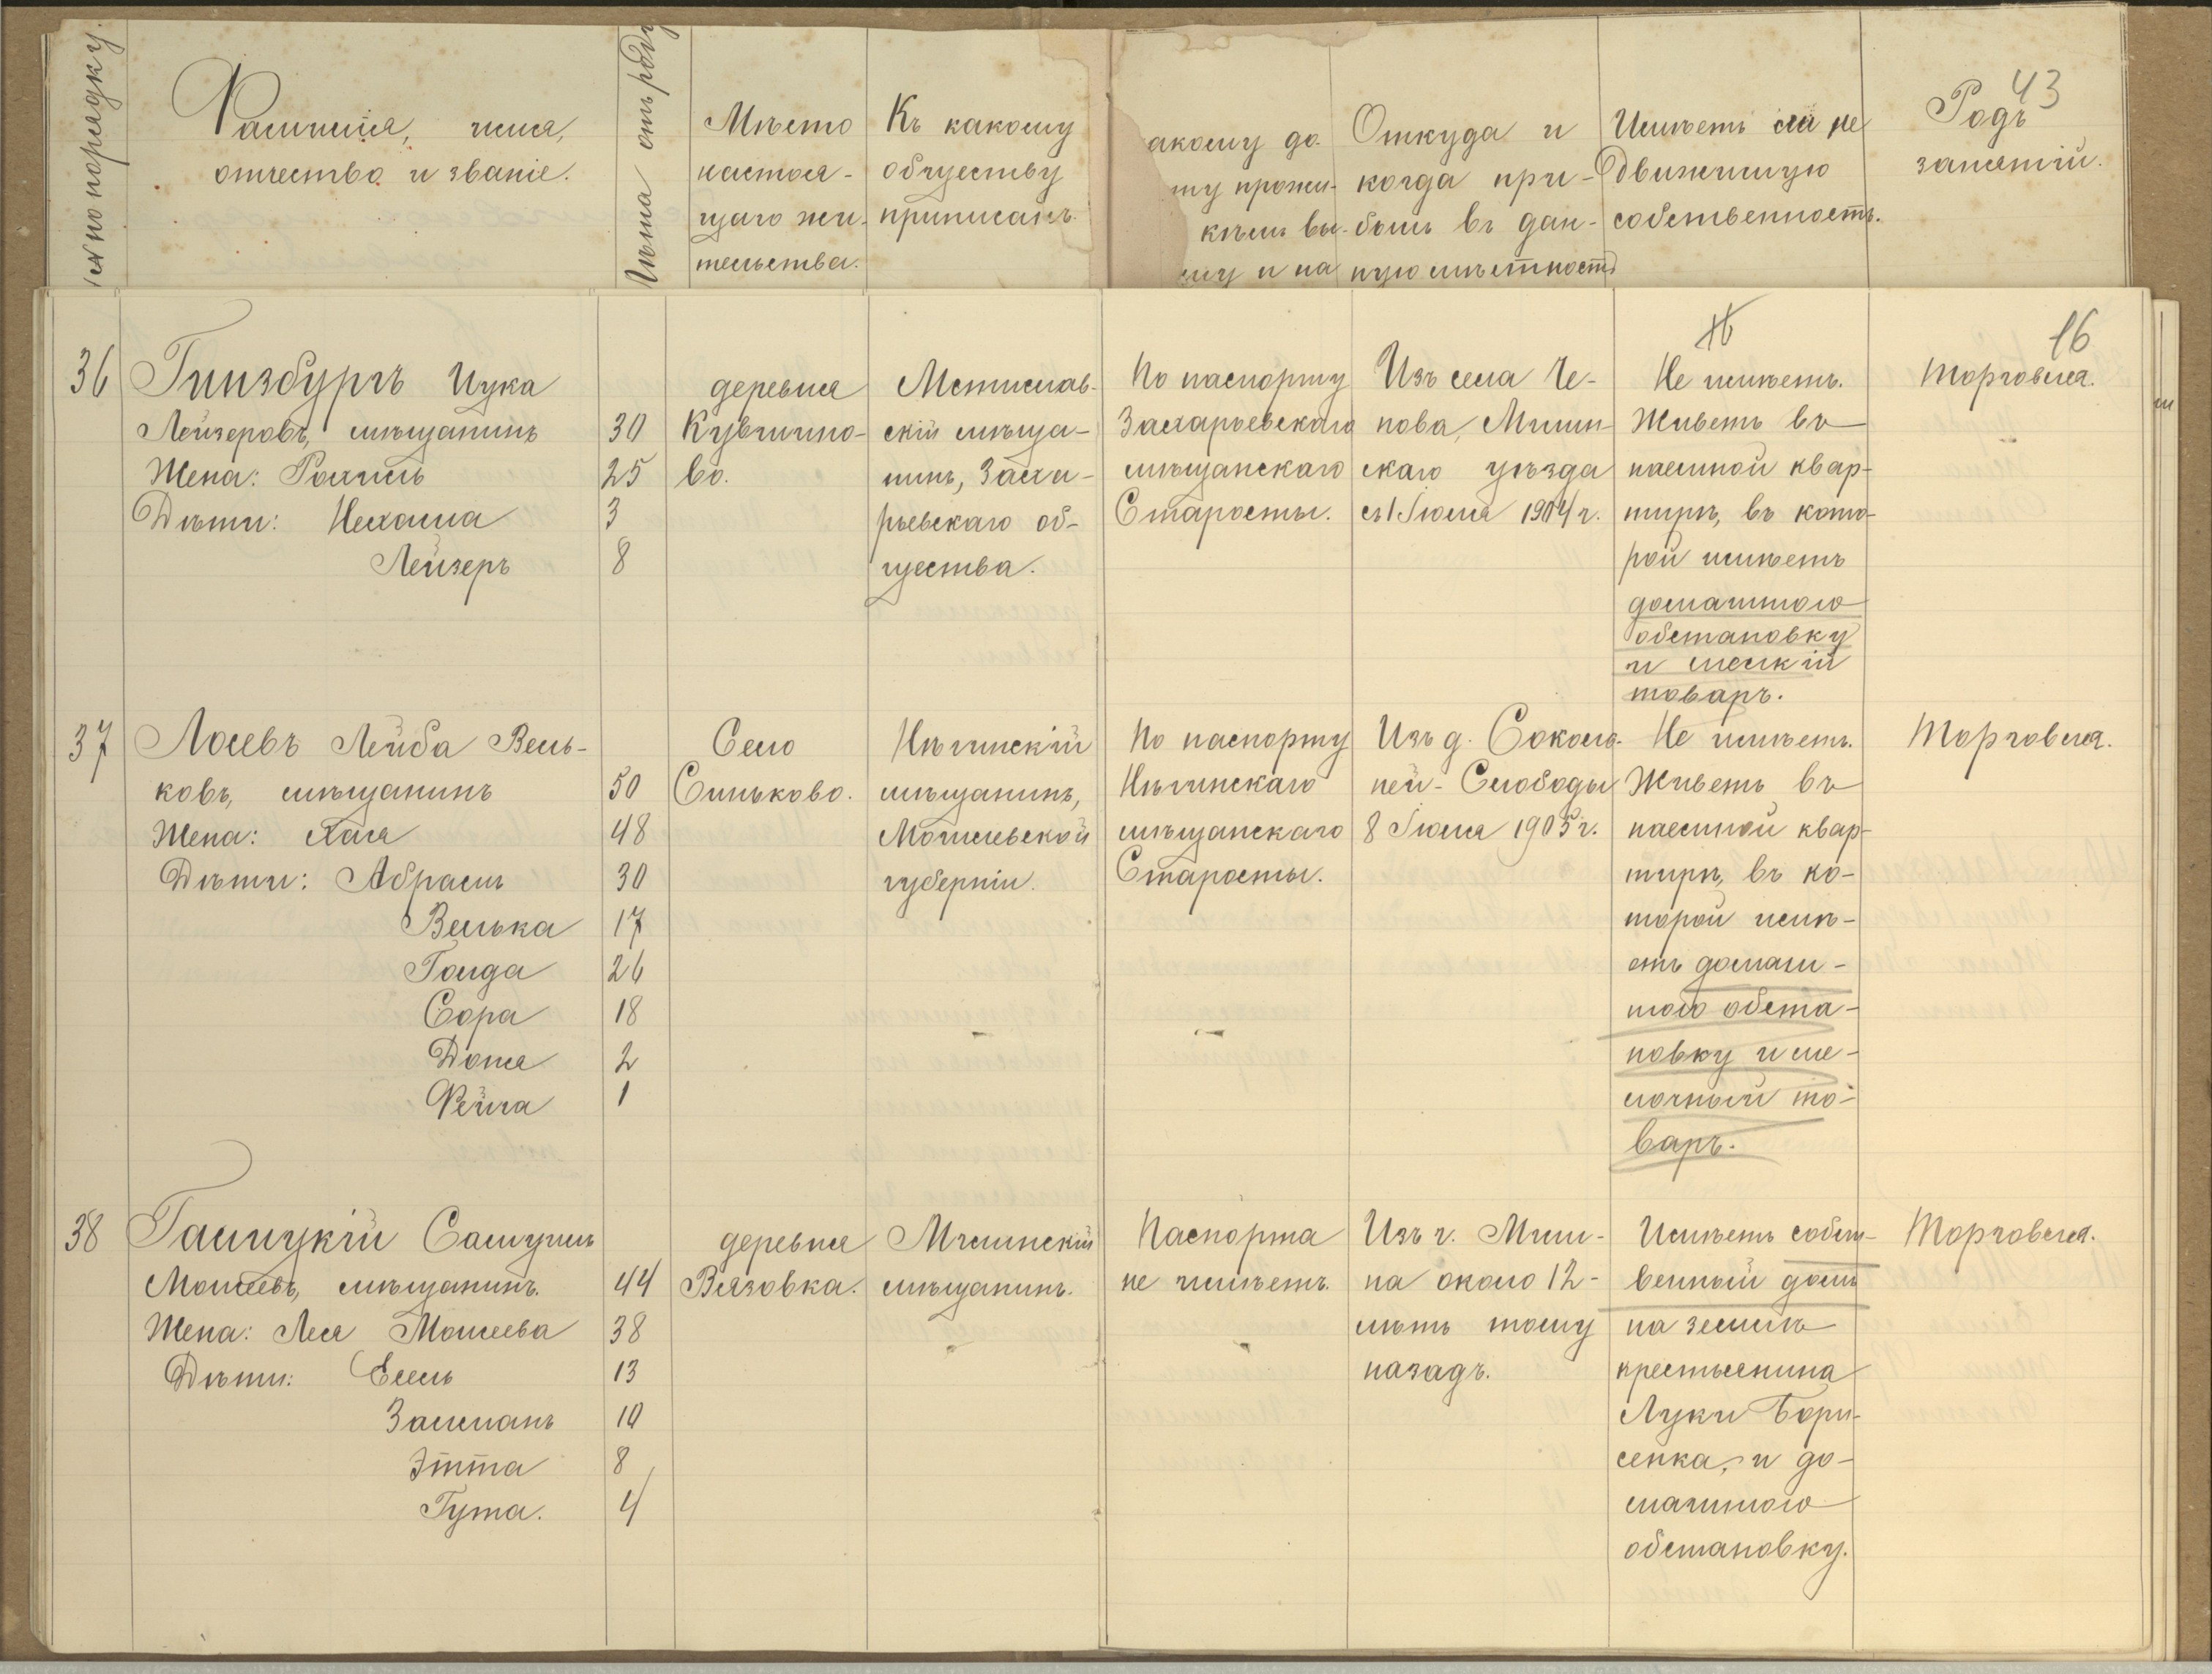 № по порядку
Фамилія, имя,
отчество и званіе.
Лѣта отъ роду
Мѣсто
настоя-
щаго жи-
тельства.
Къ какому
обществу
приписанъ.
акому до-
ту прожи-
кѣмъ вы-
му и на
Откуда и
когда при-
былъ въ дан-
ную мѣстность
Имѣетъ ли не
движимую
собственность.
Родъ
занятій.
43
16
16
36
Гинзбургъ Ицка
Лейзеровъ, мѣщанинъ 30
Жена: Рохиль 25
Дѣти: Нехама 3
Лейзеръ 8
деревня
Кувичино-
во.
Мстислав-
скій мѣща-
нинъ, Заха-
рьевскаго об-
щества.
По паспорту
Захарьевскаго
мѣщанскаго
Старосты.
Изъ села Че-
пова, Мглин-
скаго уѣзда
съ 1 Іюля 1904 г.
Не имѣетъ.
Живетъ въ
наемной квар-
тирѣ, въ кото-
рой имѣетъ
домашнюю
обстановку
и мелкій
товаръ.
Торговля.
37
Лосевъ Лейба Вель-
ковъ, мѣщанинъ 50
Жена: Хая 48
Дѣти: Абрамъ 30
Велька 17
Голда 26
Сора 18
Доня 2
Фейга 1
Село
Синьково.
Нѣгинскій
мѣщанинъ,
Могилевской
губерніи.
По паспорту
Нѣгинскаго
мѣщанскаго
Старосты.
Изъ д. Соколь-
ней-Слободы
8 Іюля 1905 г.
Не имѣетъ.
Живетъ въ
наемной квар-
тирѣ, въ ко-
торой имѣ-
етъ домаш-
нюю обста-
новку и ме-
лочный то-
варъ.
Торговля.
38
Галицкій Самуилъ
Моисеевъ, мѣщанинъ. 44
Жена: Лея Моисеева 38
Дѣти: Есель 13
Залманъ 10
Этта 8
Гута. 4
деревня
Вязовка.
Мглинскій
мѣщанинъ.
Паспорта
не имѣетъ.
Изъ г. Мгли-
на около 12-
лѣтъ тому
назадъ.
Имѣетъ собст-
венный домъ
на землѣ
крестьянина
Луки Бори-
сенка, и до-
машнюю
обстановку.
Торговля.